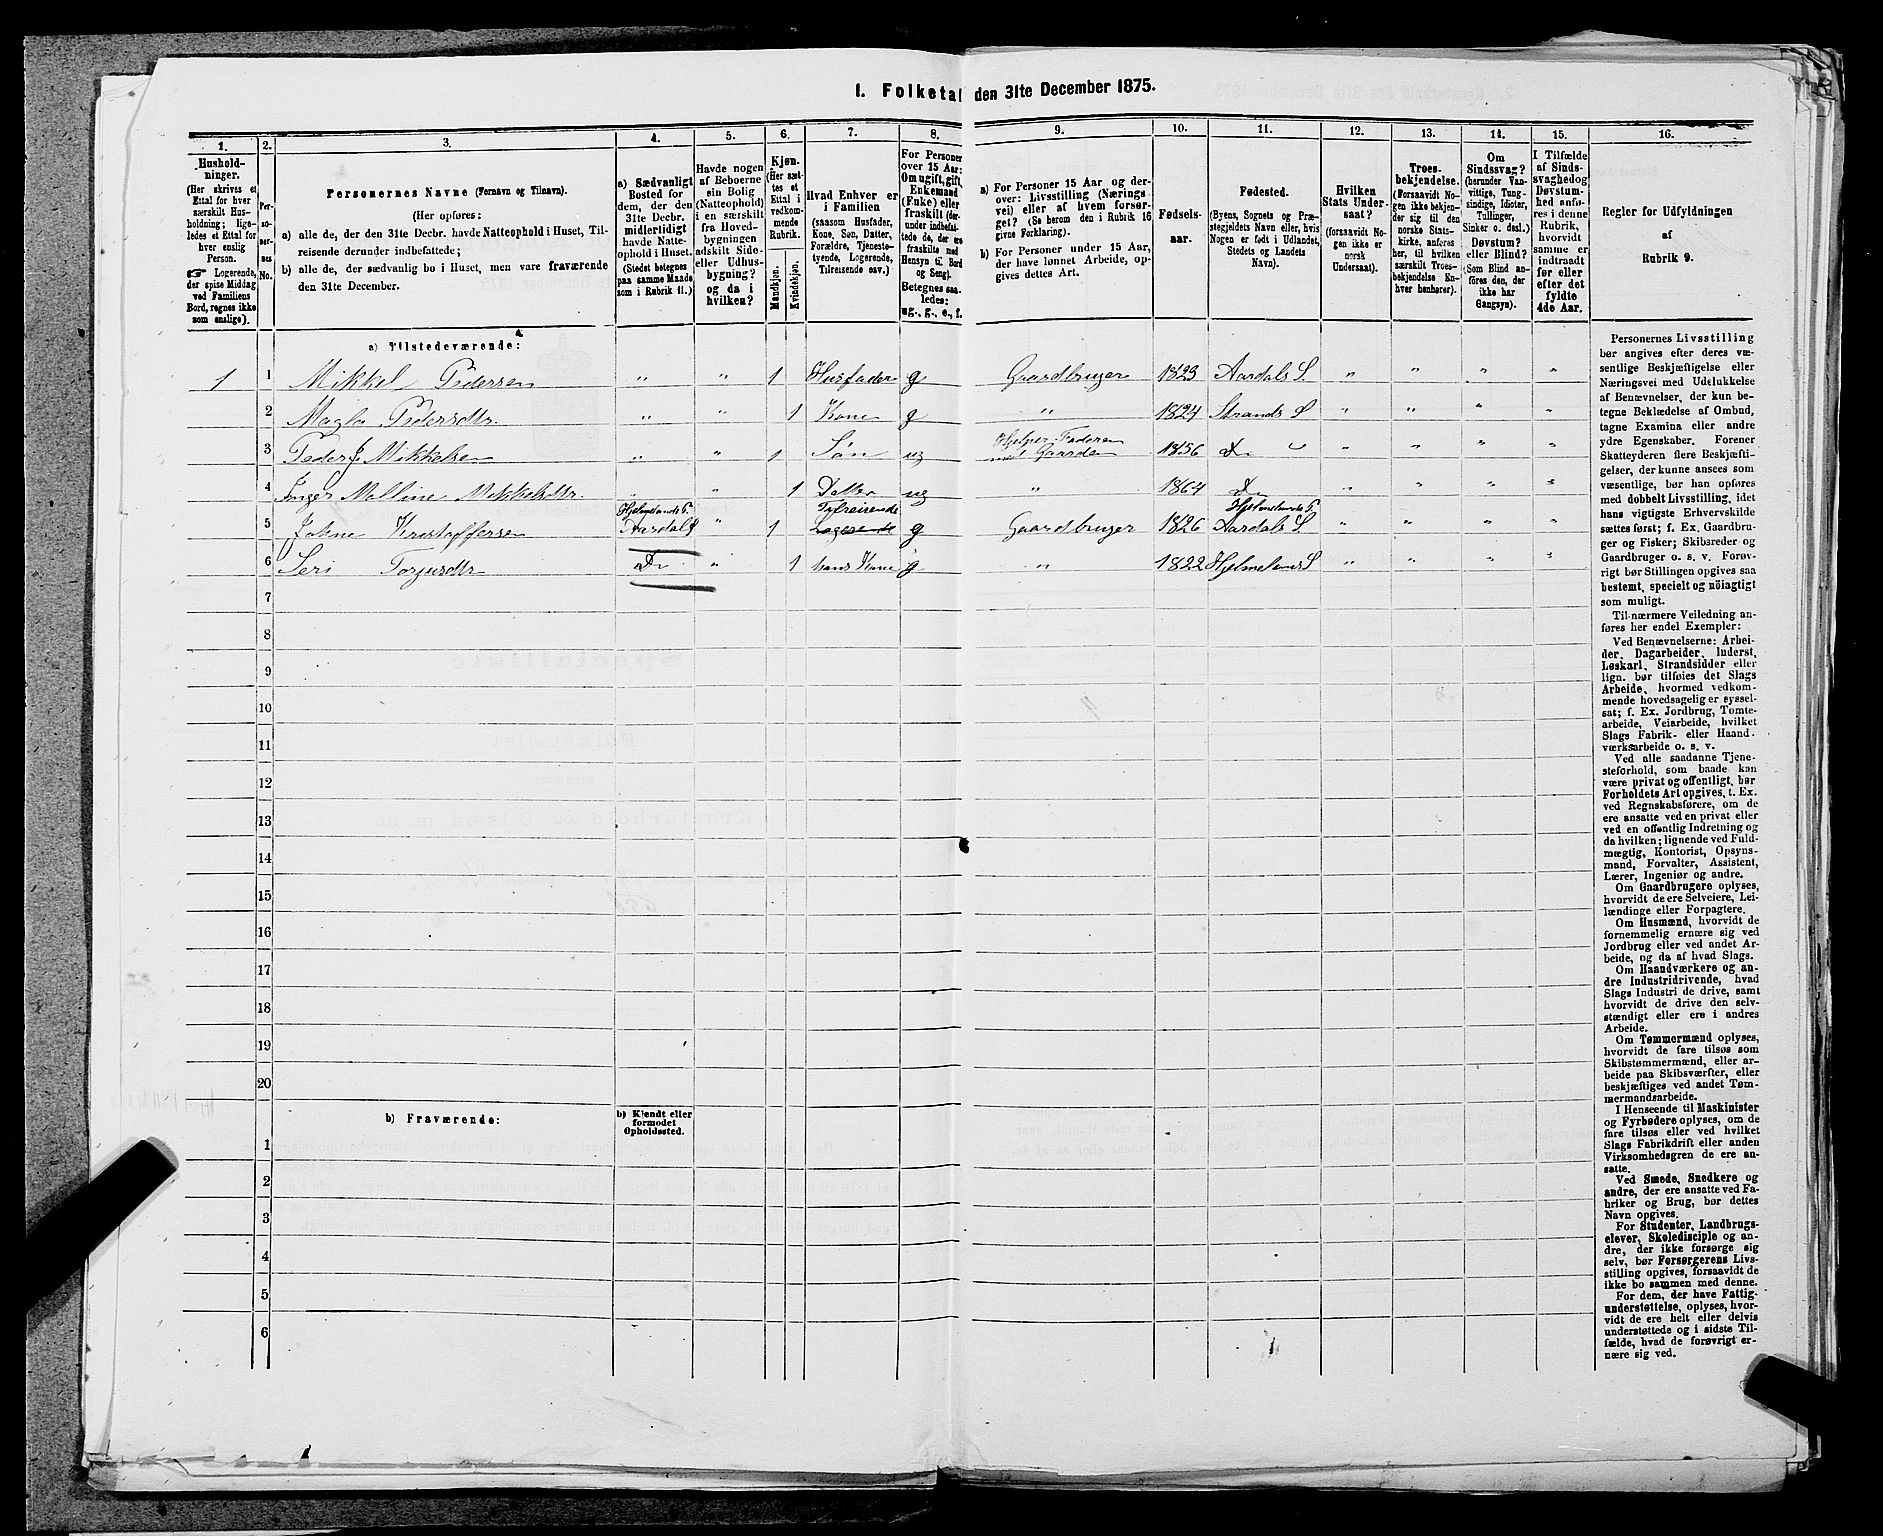 I. Folketal den 31te December 1875.
1.
Hushold-
ninger.
(Her skrives et
Ettal for hver
særskilt Hus-
holdning; lige-
ledes et Ettal for
hver enslig
Person.
☞ Logerende,
der spise Middag
ved Familiens
Bord, regnes ikke
som enslige).
2.
Per-
so-
ner-
nes
No.
3.
Personernes Navne (Fornavn og Tilnavn).
(Her opføres:
a) alle de, der den 31te Decbr. havde Natteophold i Huset, Til-
reisende derunder indbefattede;
b) alle de, der sædvanlig bo i Huset, men vare fraværende
den 31te December.
4.
a) Sædvanligt
Bosted for
dem, der den
31te Decbr.
midlertidigt
havde Natte-
ophold i Huset.
(Stedet betegnes
paa samme Maade
som i Rubrik 11.)
5.
Havde nogen
af Beboerne
sin Bolig
(Natteophold)
i en særskilt
fra Hoved-
bygningen
adskilt Side-
eller Udhus-
bygning?
og da i
hvilken?
6.
Kjøn.
(Her sæt-
tes et
Ettal i
vedkom-
mende
Rubrik.
Mandkjøn.
Kvindekjøn.
7.
Hvad Enhver er
i Familien
(saasom Husfader,
Kone, Søn, Datter,
Forældre, Tjeneste-
tyende, Logerende,
Tilreisende osv.)
8.
For Personer
over 15 Aar:
Om ugift, gift,
Enkemand
(Enke) eller
fraskilt (der-
under indbefat-
tede de, der ere
fraskilte med
Hensyn til Bord
og Seng).
Betegnes saa-
ledes:
ug., g., e., f.
9.
a) For Personer 15 Aar og der-
over: Livsstilling (Nærings-
vei) eller af hvem forsør-
get? (Se herom den i Rubrik 16
givne Forklaring).
b) For Personer under 15 Aar,
der have lønnet Arbeide, op-
gives dettes Art.
10.
Fødsels-
aar.
11.
Fødested.
(Byens, Sognets og Præ-
stegjeldets Navn eller, hvis
Nogen er født i Udlandet,
Stedets og Landets
Navn).
12.
Hvilken
Stats Under-
saat?
(forsaavidt No-
gen ikke er
norsk
Undersaat).
13.
Troes-
bekjendelse.
(Forsaavidt No-
gen ikke bekjen-
der sig til den
norske Stats-
kirke, anføres
her, til hvilken
særskilt Troes-
bekjendelse En-
hver henhører).
14.
Om
Sindssvag?
(herunder Van-
vittige, Idioter,
Tullinger,
Sinker o. desl.)
Døvstum?
eller Blind?
(Som Blind an-
føres den, der
ikke har
Gangsyn).
15.
I Tilfælde
af Sinds-
svaghed og
Døvstum-
hed anfø-
res i denne
Rubrik,
hvorvidt
samme er
indtraadt
før eller
efter det
fyldte
4de Aar.
16.
Regler for Udfyldningen
af
Rubrik 9.
a) Tilstedeværende:
1 1 Mikkel Pedersen " " 1 Husfader g Gaardbruger 1823 Aardals S. " " " "
2 Magla Pedersdtr. " " 1 Kone g " 1824 Strands S " " " "
3 Peder J Mikkelsen " " 1 Søn ug Hjelper Faderen
med Gaarden 1856 Do " " " " "
4 Inger Malline Mikkelsdtr. " " 1 Datter ug " 1864 Do " " " "
5 Jakne Kristoffersen Hjelmelands P.
Aardals S " 1 Tilreisende
Logerende g Gaardbruger 1826 Hjelmelands P.
Aardals S. " " " "
6 Seri Torjusdtr Do " 1 hans Kone g " 1822 Hjelmelands S " " " "
7
8
9
10
11
12
13
14
15
16
17
18
19
20
b) Fraværende:
b) Kjendt eller
formodet
Opholdssted.
1
2
3
4
5
6
Personernes Livsstilling
bør angives efter deres væ-
sentlige Beskjæftigelse eller
Næringsvei med Udelukkelse
af Benævnelser, der kun be-
tegne Beklædelse af Ombud,
tagne Examina eller andre
ydre Egenskaber. Forener
Skatteyderen flere Beskjæfti-
gelser, der kunne ansees som
væsentlige, bør han opføres
med dobbelt Livsstilling, idet
hans vigtigste Erhvervskilde
sættes først; f. Ex. Gaardbru-
ger og Fisker; Skibsreder og
Gaardbruger o. s. v. Forøv-
rigt bør Stillingen opgives saa
bestemt, specielt og nöiagtigt
som muligt.
Til nærmere Veiledning an-
føres her endel Exempler:
Ved Benævnelserne: Arbei-
der, Dagarbeider, Inderst,
Løskarl, Strandsidder eller
lign. bør tilføies det Slags
Arbeide, hvormed vedkom-
mende hovedsagelig er syssel-
sat; f. Ex. Jordbrug, Tomte-
arbeide, Veiarbeide, hvilket
Slags Fabrik- eller Haand-
værksarbeide o. s. v.
Ved alle saadanne Tjene-
steforhold, som baade kan
være privat og offentligt, bør
Forholdets Art opgives, t. Ex.
ved Regnskabsførere, om de
ere ansatte ved en privat eller
ved en offentlig Indretning og
da hvilken; lignende ved Fuld-
mægtig, Kontorist, Opsyns-
mand, Forvalter, Assistent,
Lærer, Ingeniør og andre.
Om Gaardbrugere oplyses,
hvorvidt de ere Selveiere, Lei-
lændinge eller Forpagtere.
Om Husmænd, hvorvidt de
fornemmelig ernære sig ved
Jordbrug eller ved andet Ar-
beide, og da af hvad Slags.
Om Haandværkere og an-
dre Industridrivende, hvad
Slags Industri de drive, samt
hvorvidt de drive den selv-
stændigt eller ere i andres
Arbeide.
Om Tømmermænd oplyses,
hvorvidt de fare tilsøs som
Skibstømmermænd, eller ar-
beide paa Skibsværfter, eller
beskjæftiges ved andet Tøm-
mermandsarbeide.
I Henseende til Maskinister
og Fyrbødere oplyses, om de
fare tilsøs eller ved hvilket
Slags Fabrikdrift eller anden
Virksomhedsgren de ere an-
satte.
Ved Smede, Snedkere og
andre, der ere ansatte ved Fa-
briker og Brug, bør dettes
Navn opgives.
For Studenter, Landbrugs-
elever, Skoledisciple og an-
dre, der ikke forsørge sig
selv, bør Forsørgerens Livs-
stilling opgives, forsaavidt de
ikke bo sammen med denne.
For dem, der have Fattig-
understøttelse, oplyses, hvor-
vidt de ere helt eller delvis
understøttede og i sidste Til-
fælde, hvad de forøvrigt er-
nære sig ved.